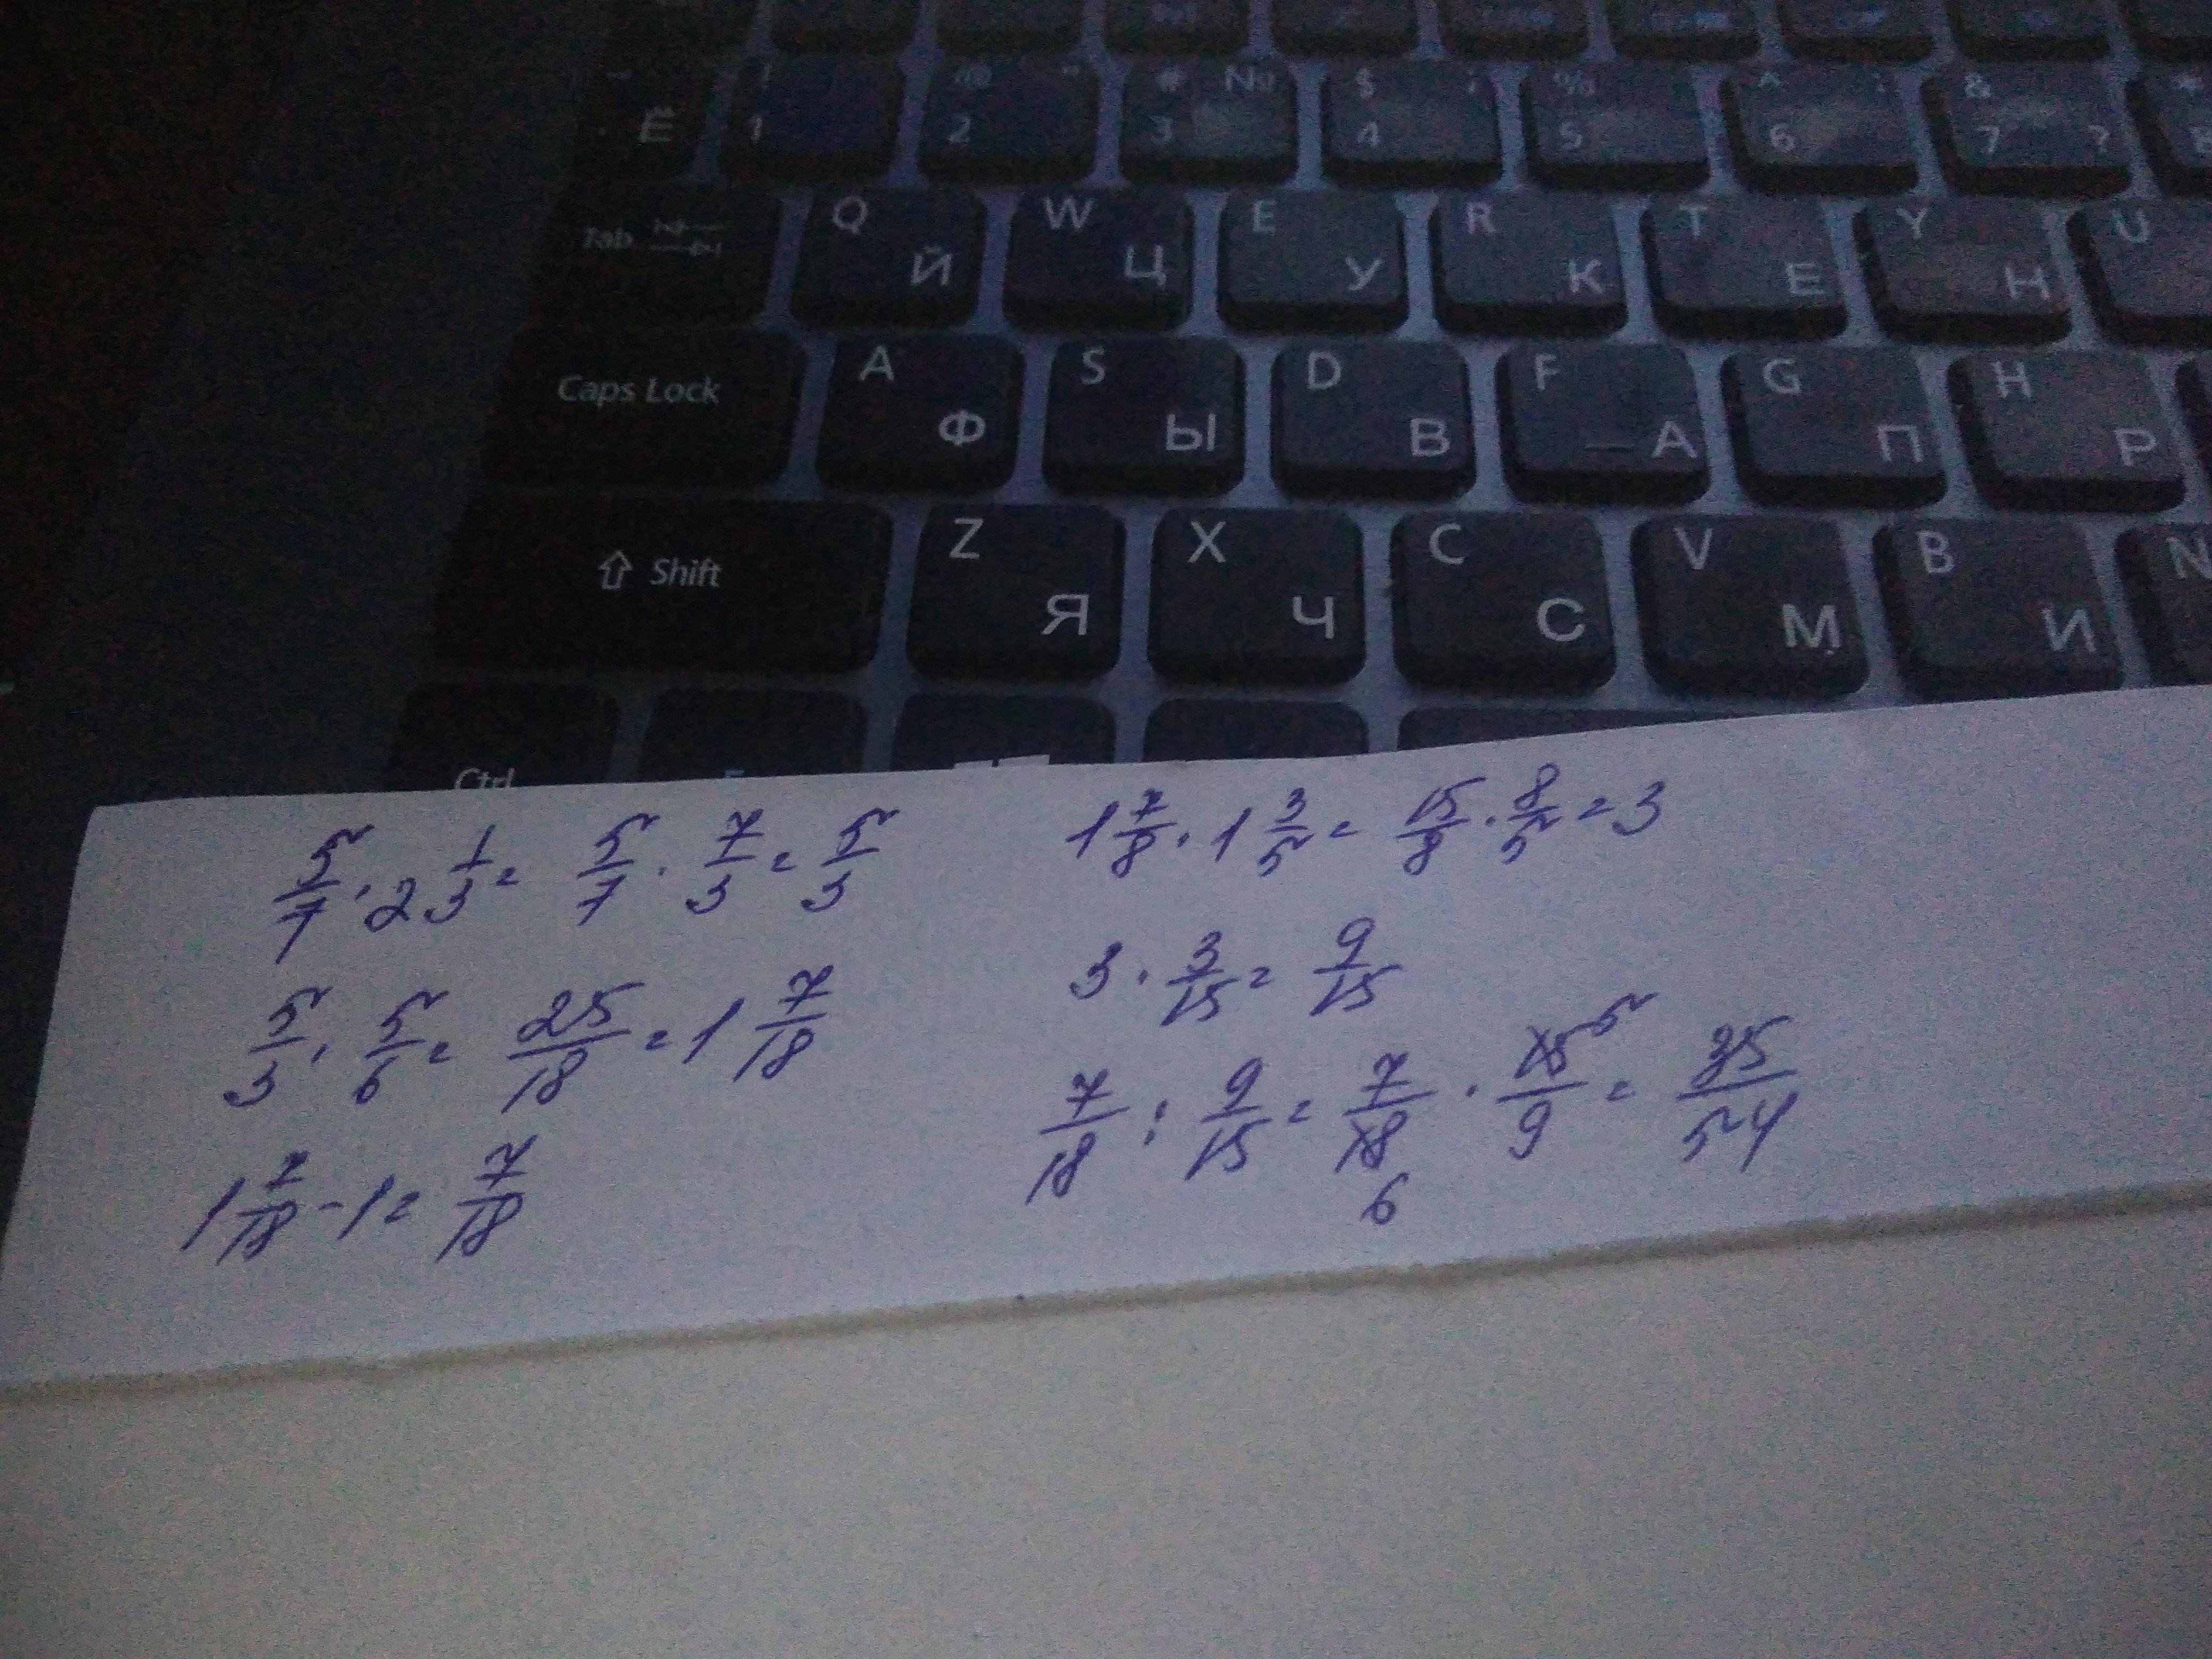 Ё ! 1 @ " 2 # № 3 $ ; 4 % 5 ^ : 6 & 7 ? *
Tab Q Й W Ц E У R К T Е Y Н U
Caps Lock A Ф S Ы D В F А G П H Р
Shift Z Я X Ч C С V М B И N
Ctrl
5/7 · 2 1/3 = 5/7 · 7/3 = 5/3
5/3 · 5/6 = 25/18 = 1 7/18
1 7/18 - 1 = 7/18
1 7/8 · 1 3/5 = 15/8 · 8/5 = 3
3 · 3/15 = 9/15
7/18 : 9/15 = 7/18 6 · 15 5/9 = 35/54